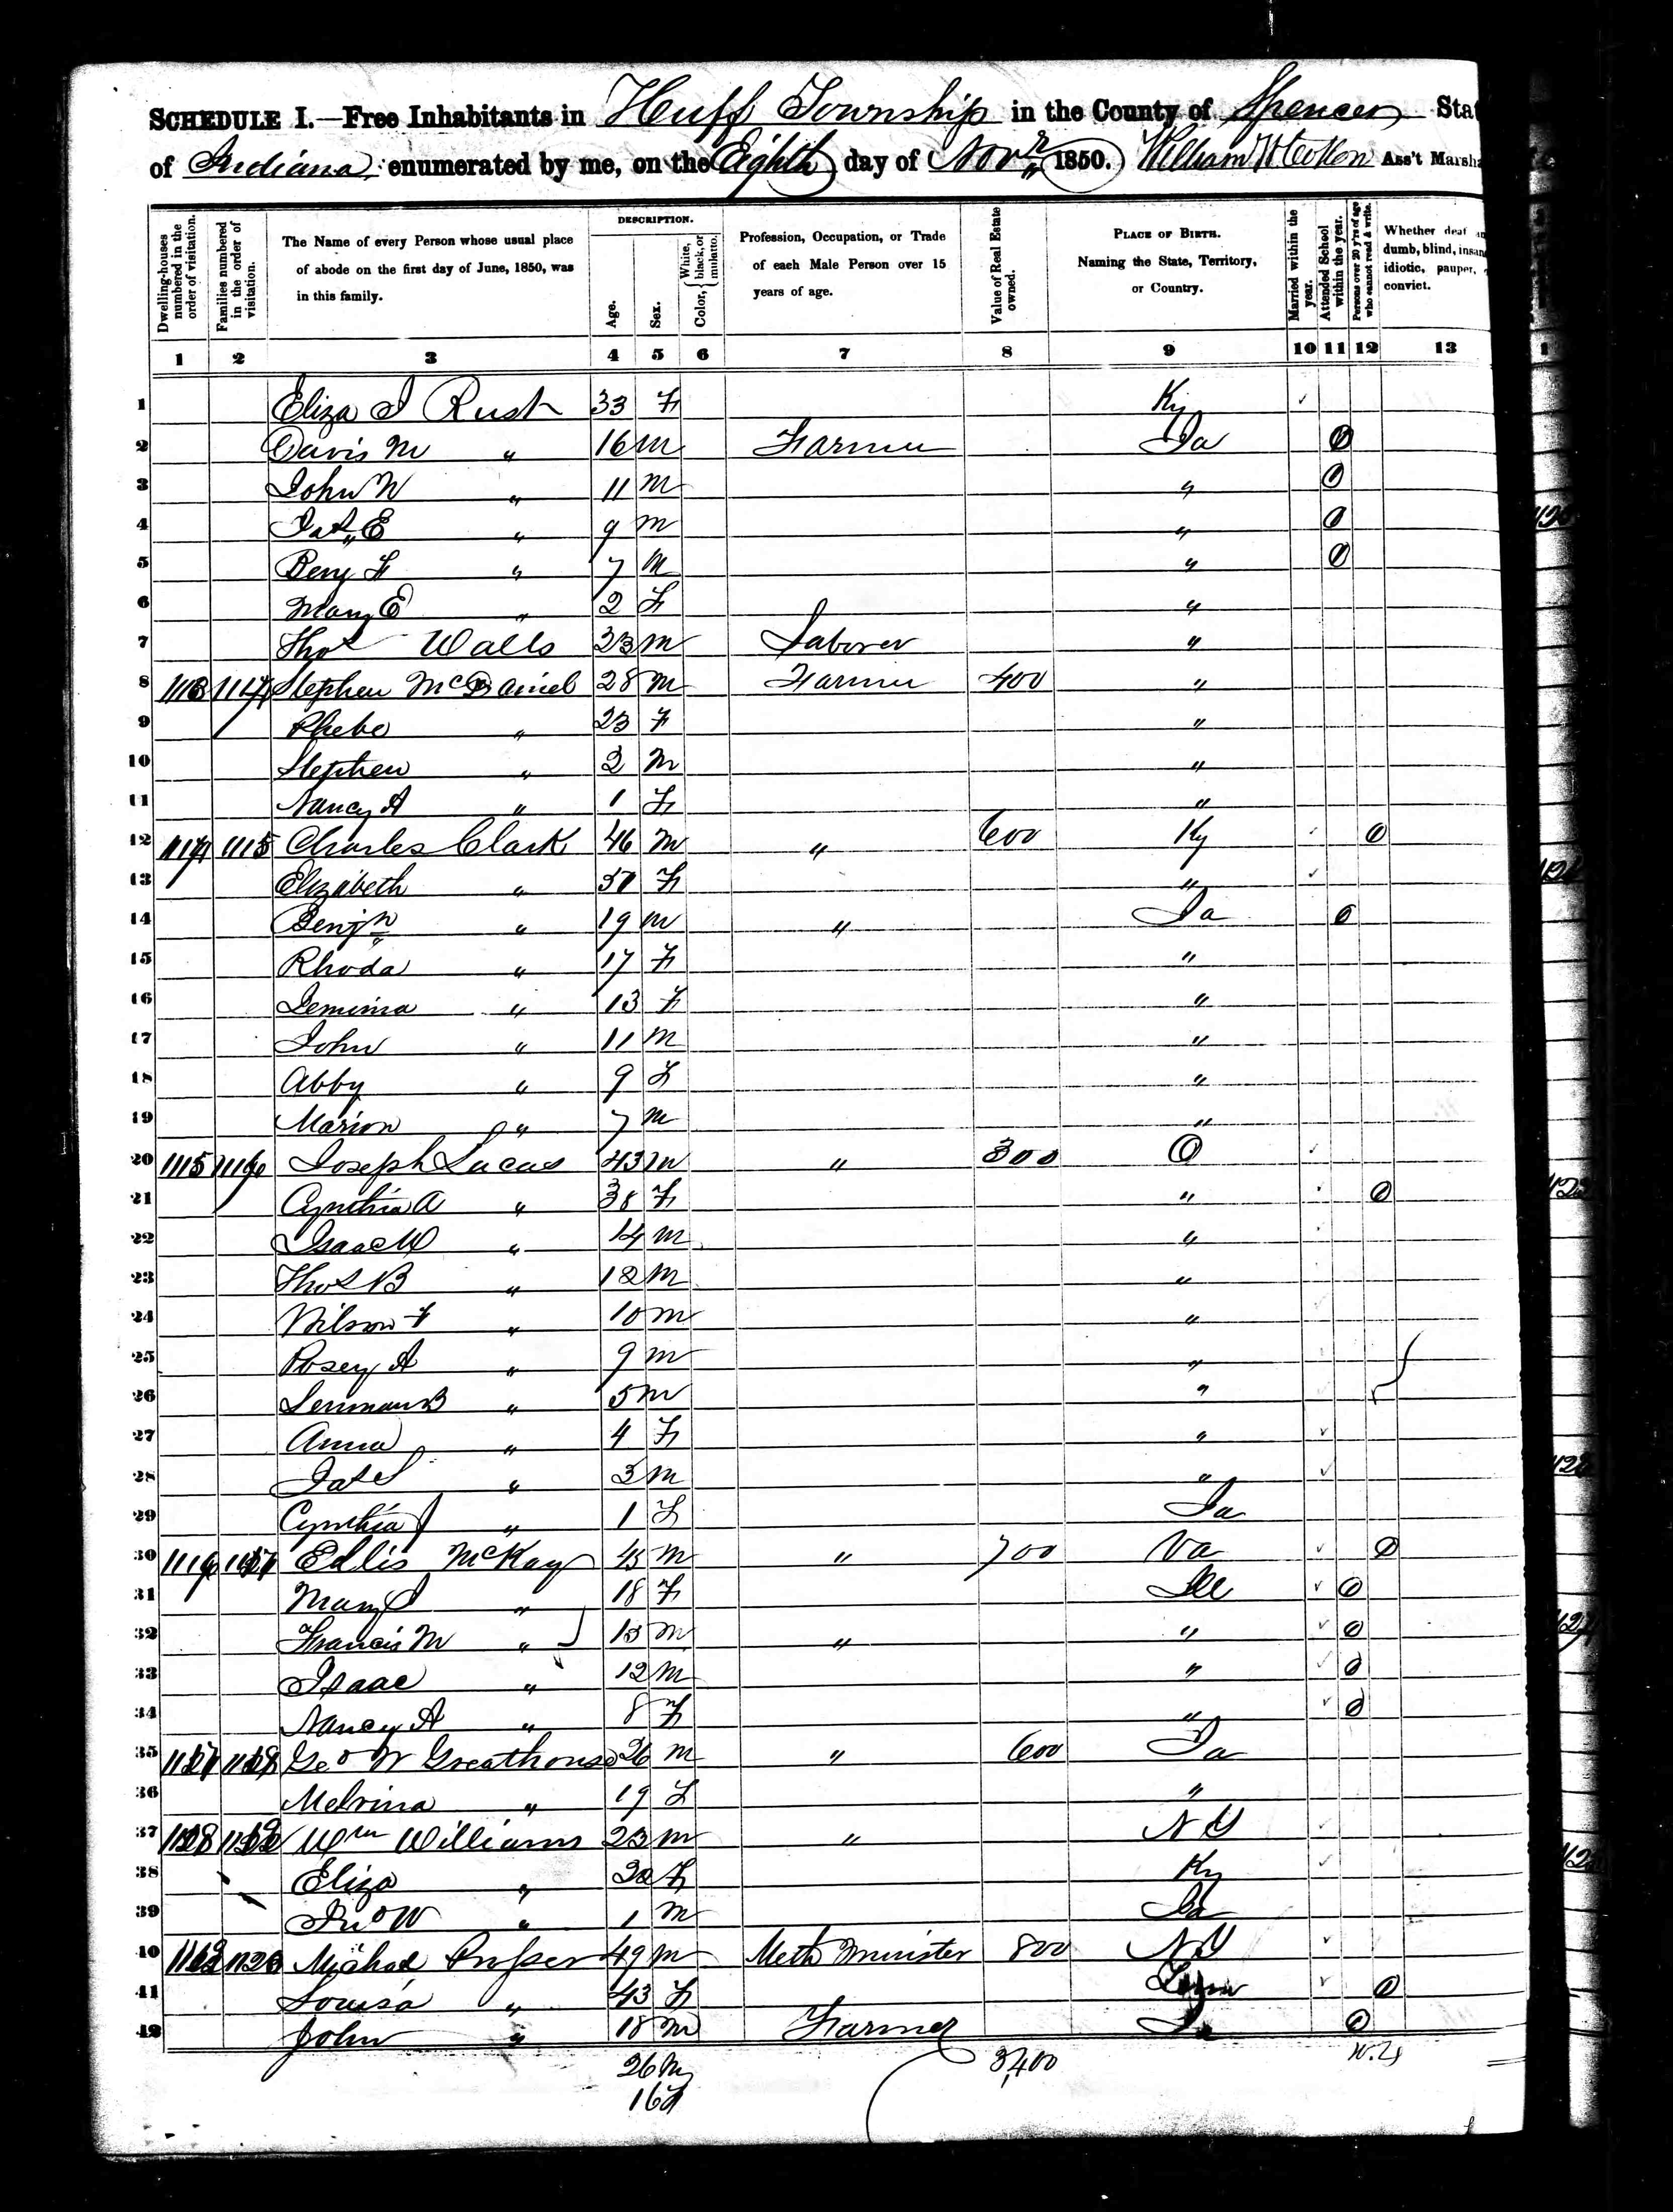 SCHEDULE I.—Free Inhabitants in Huff Township in the County of Spencer Stat
of Indiana enumerated by me, on the Eighth day of Novr 1850. William H Cotton Ass't Marsha
Dwelling-houses numbered in the order of visitation.
Families numbered in the order of visitation.
The Name of every Person whose usual place of abode on the first day of June, 1850, was in this family.
DESCRIPTION.
Age.
Sex.
Color, { White, black, or mulatto.
Profession, Occupation, or Trade of each Male Person over 15 years of age.
Value of Real Estate owned.
PLACE OF BIRTH. Naming the State, Territory, or Country.
Married within the year.
Attended School within the year.
Persons over 20 y'rs of age who cannot read & write.
Whether deaf an dumb, blind, insan idiotic, pauper, convict.
1 2 3 4 5 6 7 8 9 10 11 12 13
1 Eliza J Rush 33 F Ky
2 Davis M " 16 M Farmer Ia
3 John W " 11 M "
4 Jas E " 9 M "
5 Benj F " 7 M "
6 Mary E " 2 F "
7 Thos Walls 23 M Laborer "
8 1113 1114 Stephen McDaniel 28 M Farmer 400 "
9 Phebe " 23 F "
10 Stephen " 2 M "
11 Nancy A " 1 F "
12 1114 1115 Charles Clark 46 M " 600 Ky
13 Elizabeth " 37 F "
14 Benjn " 19 M " Ia
15 Rhoda " 17 F "
16 Jemima " 13 F "
17 John " 11 M "
18 Abby " 9 F "
19 Marion " 7 M "
20 1115 1116 Joseph Lucas 43 M " 300 O
21 Cynthia A " 38 F "
22 Isaac W " 14 M "
23 Thos B " 12 M "
24 Wilson F " 10 M "
25 Posey A " 9 M "
26 " 5 M "
27 Anna " 4 F "
28 Jas " 3 M "
29 Cynthia J " 1 F Ia
30 1116 1117 Ellis McKay 45 M " 700 Va
31 Mary J " 18 F Ill
32 Francis M " 15 M " "
33 Isaac " 12 M "
34 Nancy A " 8 F "
35 1117 1118 Geo W Greathouse 26 M " 600 Ia
36 Melvina " 19 F "
37 1118 1119 Wm Williams 23 M " N Y
38 Eliza " 22 F Ky
39 Jno W " 1 M Ia
40 1120 Michael 49 M Meth Minister 800 N Y
41 Louisa " 43 F
42 John " 18 M Farmer Ia
26 M
16 F
3,400